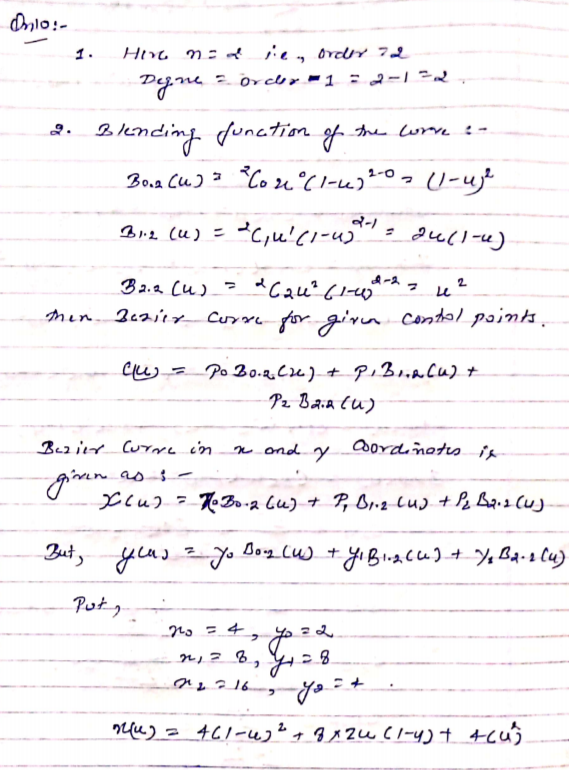 Qn10:-
1. Here n = 2 i.e., order = 2
Degree = order - 1 = 2-1 = 2.
2. Blending function of the curve :-
B0.2 (u) = ²C0 u⁰ (1-u)²⁻⁰ = (1-u)²
B1.2 (u) = ²C1 u¹ (1-u)²⁻¹ = 2u(1-u)
B2.2 (u) = ²C2 u² (1-u)²⁻² = u²
then Bezier Curve for given control points.
C(u) = P0 B0.2 (u) + P1 B1.2 (u) +
P2 B2.2 (u)
Bezier Curve in x and y Coordinates is
given as :-
X(u) = X0 B0.2 (u) + P1 B1.2 (u) + P2 B2.2 (u)
But, y(u) = y0 B0.2 (u) + y1 B1.2 (u) + y2 B2.2 (u)
Put,
x0 = 4, y0 = 2
x1 = 8, y1 = 8
x2 = 16, y2 = 4.
x(u) = 4(1-u)² + 8×2u (1-u) + 4(u²)